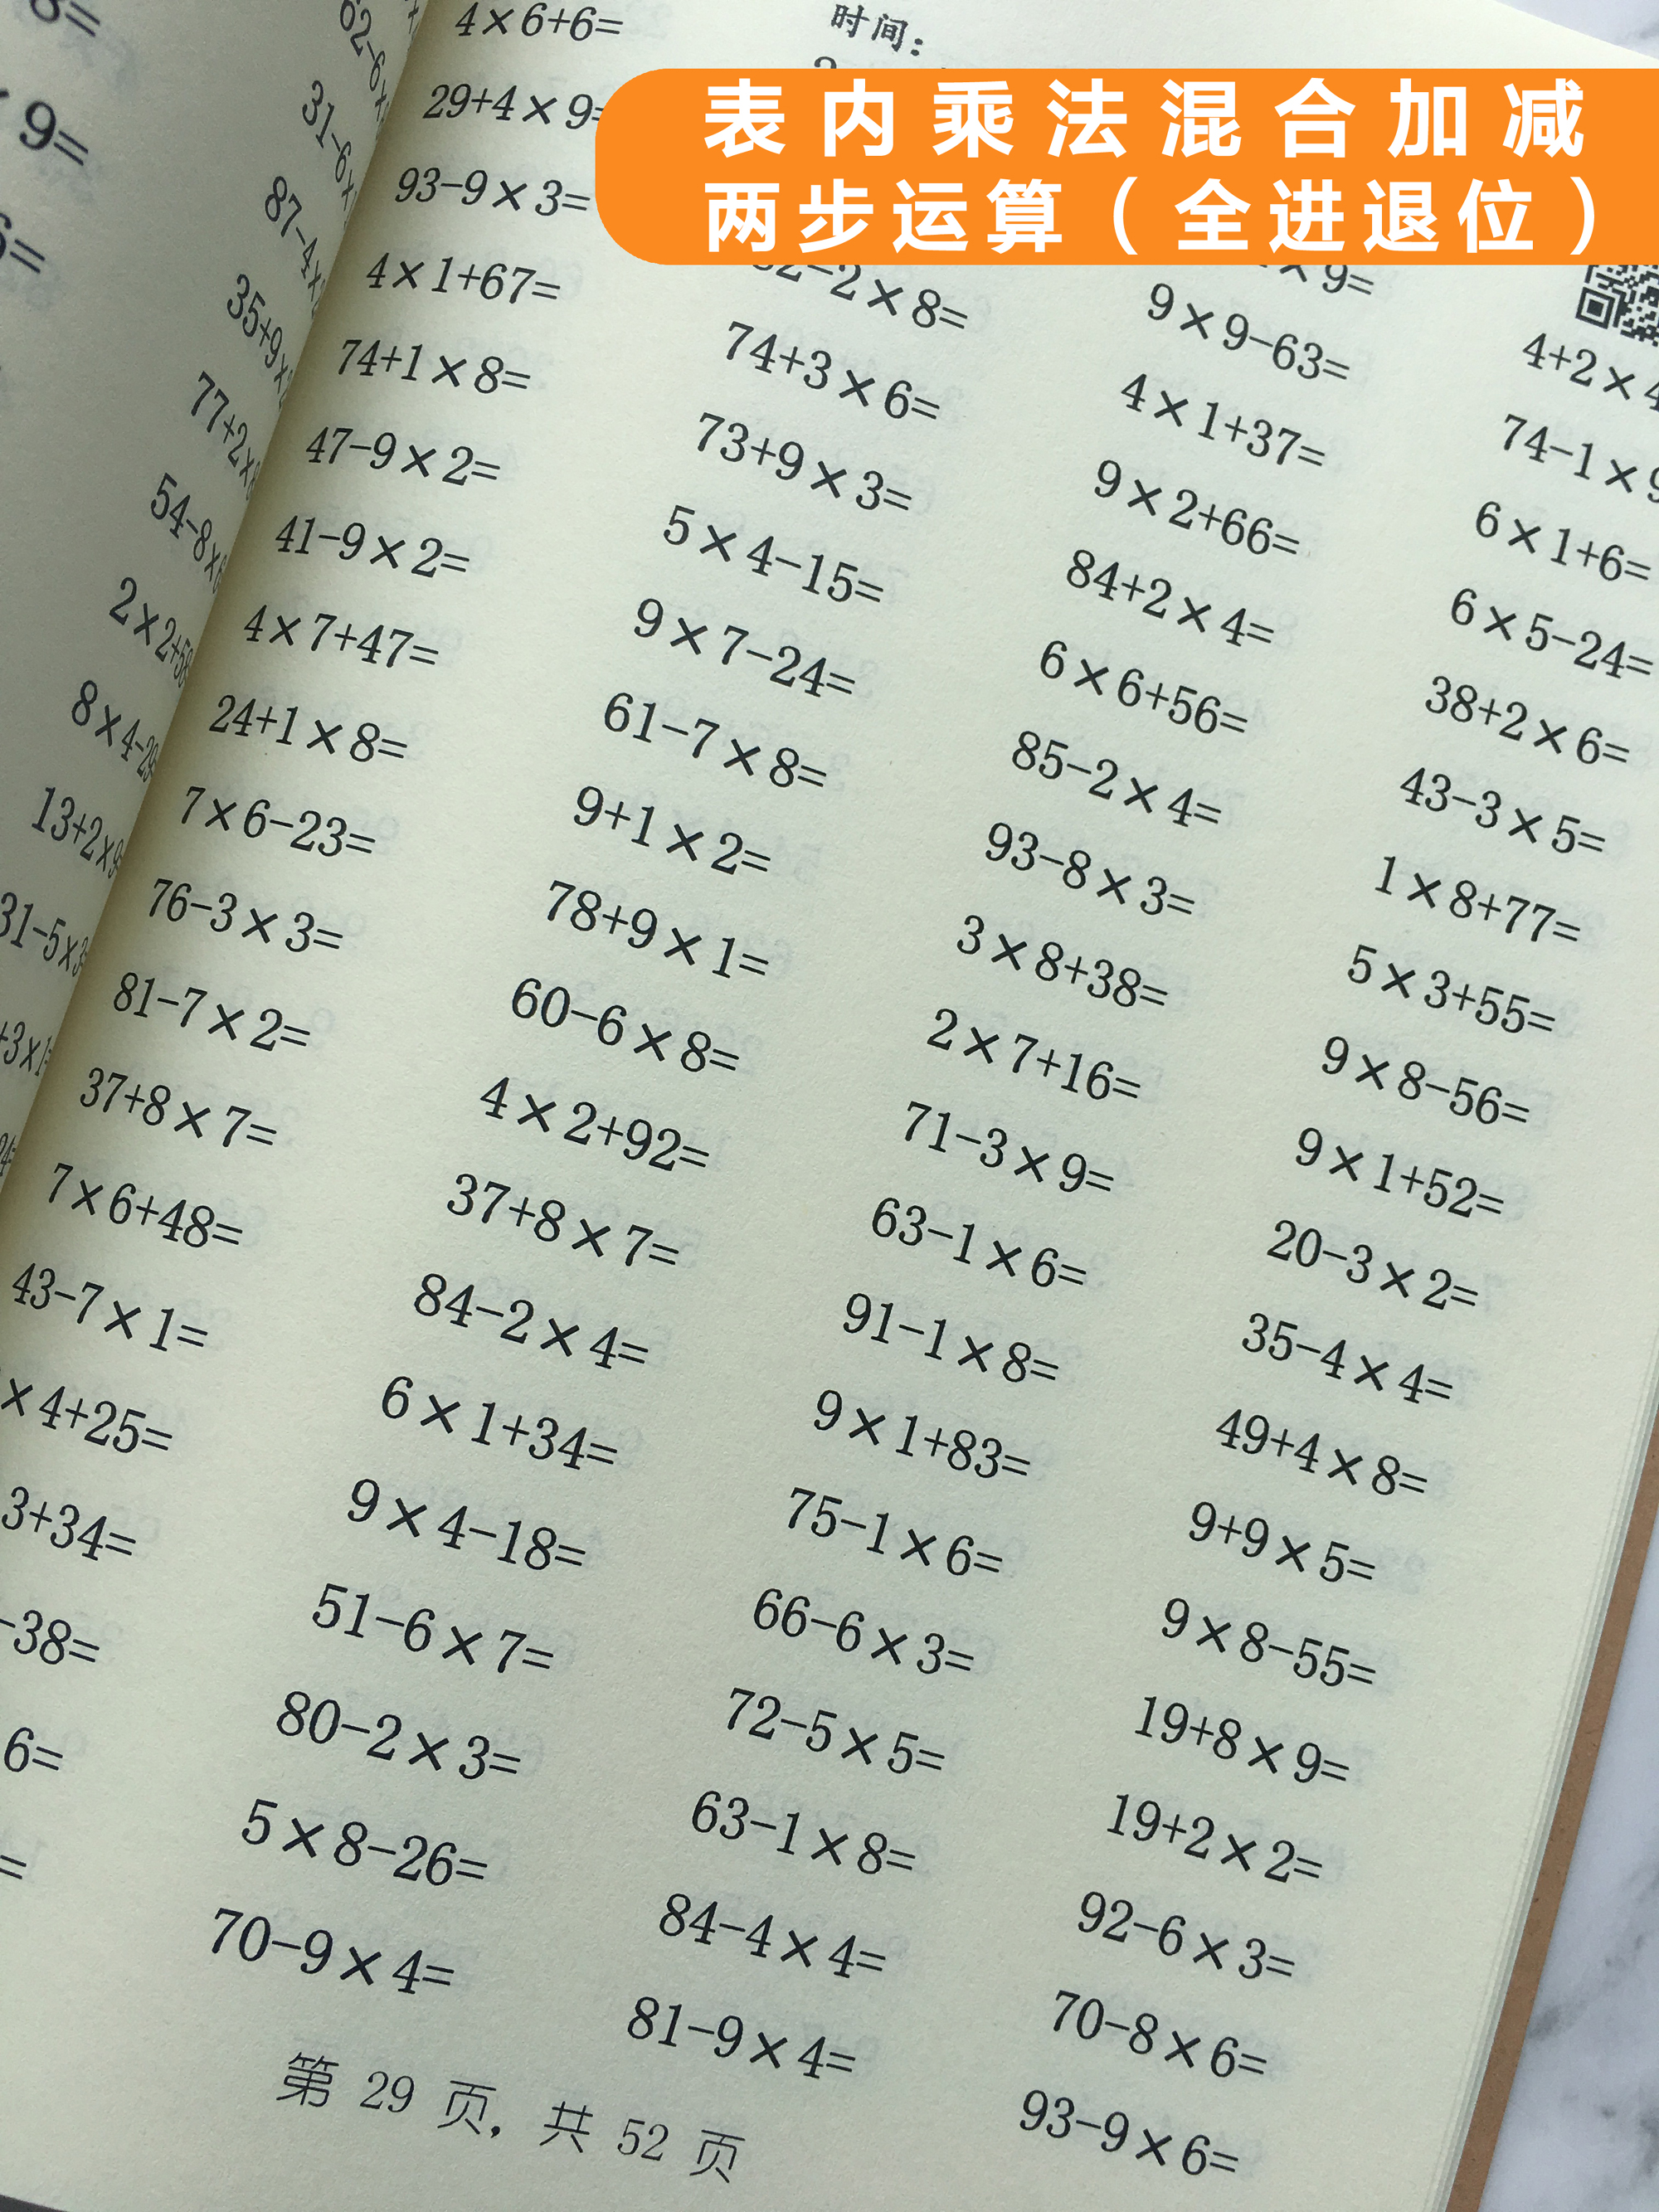 表内乘法混合加减
两步运算（全进退位）
时间：
4×6+6=
29+4×9=
93-9×3=
4×1+67=
74+1×8=
47-9×2=
41-9×2=
4×7+47=
24+1×8=
7×6-23=
76-3×3=
81-7×2=
37+8×7=
7×6+48=
43-7×1=
×4+25=
3+34=
-38=
6=
=
2-2×8=
74+3×6=
73+9×3=
5×4-15=
9×7-24=
61-7×8=
9+1×2=
78+9×1=
60-6×8=
4×2+92=
37+8×7=
84-2×4=
6×1+34=
9×4-18=
51-6×7=
80-2×3=
5×8-26=
70-9×4=
×9=
9×9-63=
4×1+37=
9×2+66=
84+2×4=
6×6+56=
85-2×4=
93-8×3=
3×8+38=
2×7+16=
71-3×9=
63-1×6=
91-1×8=
9×1+83=
75-1×6=
66-6×3=
72-5×5=
63-1×8=
84-4×4=
81-9×4=
4+2×4
74-1×9
6×1+6=
6×5-24=
38+2×6=
43-3×5=
1×8+77=
5×3+55=
9×8-56=
9×1+52=
20-3×2=
35-4×4=
49+4×8=
9+9×5=
9×8-55=
19+8×9=
19+2×2=
92-6×3=
70-8×6=
93-9×6=
第 29 页，共 52 页
8=
×9=
6=
62-6×
31-6×
87-4×
35+9×
77+2×
54-8×
2×2+58
8×4-29
13+2×9
31-5×3
+3×1
24=